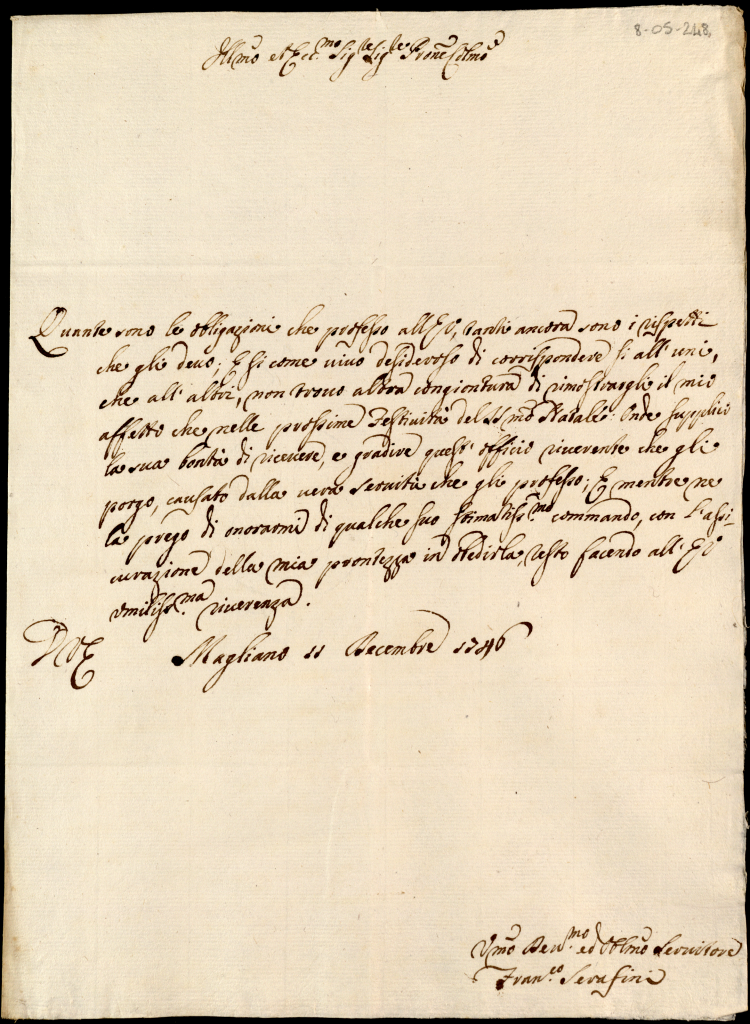 8-05-248.
Ill.mo et Ecc.mo Sig.re Sig.re Prone Colmo
Quante sono le obligazioni che professo all'E.V., tanti ancora sono i rispetti
che gli devo; E si come vivo desideroso di corrispondere si all'uni,
che all'altri, non trovo altra congiontura di rimostrargli il mio
affetto che nelle prossime Festività del SS.mo Natale: Onde supplico
la sua bontà di ricevere, e gradire quest'officio riverente che gli
porgo, causato dalla vera servitù che gli professo; E mentre ne
la prego di onorarmi di qualche suo stimatiss.mo commando, con l'assi-
curazione della mia prontezza in obedirla, resto facendo all'E.V.
umiliss.ma riverenza.
D.V.E. Magliano 11 Decembre 1746
Umo Dev.mo ed Obbmo Servitore
Fran.co Serafini